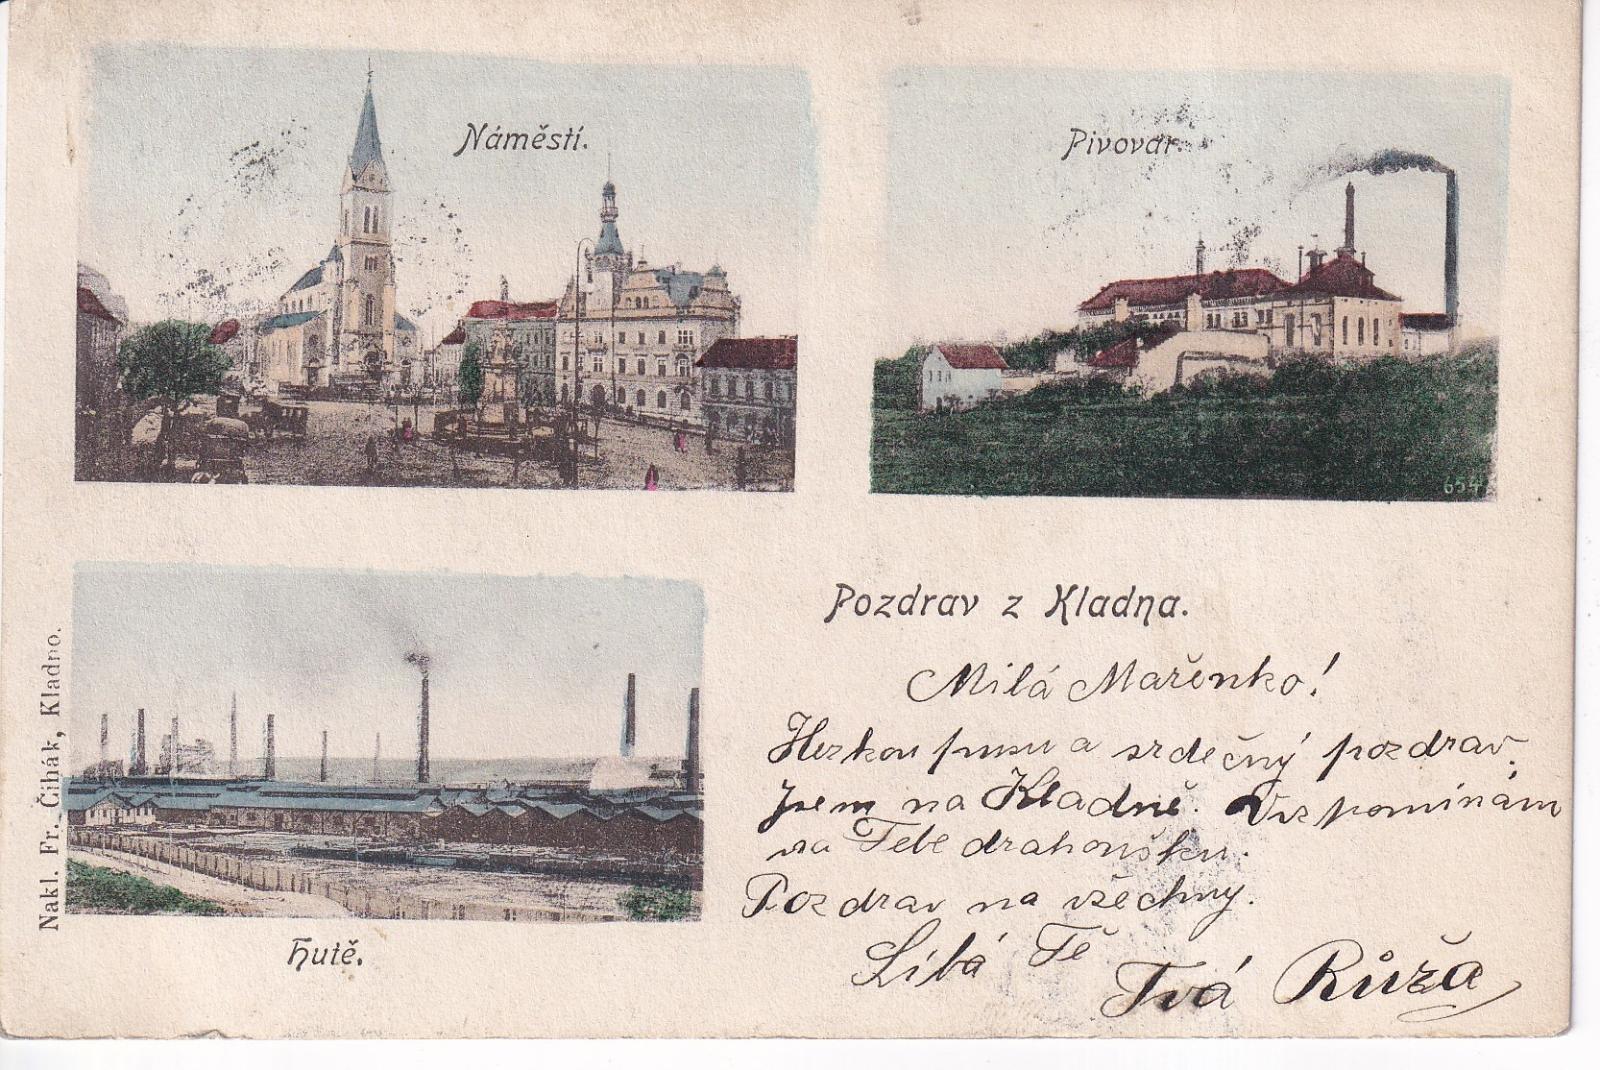 Náměstí.
Pivovar.
654
Hutě.
Nakl. Fr. Čihák, Kladno.
Pozdrav z Kladna.
Milá Mařenko!
Hezkou pusu a srdečný pozdrav.
Jsem na Kladně. Vzpomínám
na Tebe drahoušku.
Pozdrav na všechny.
Líbá Tě
Tvá Růža